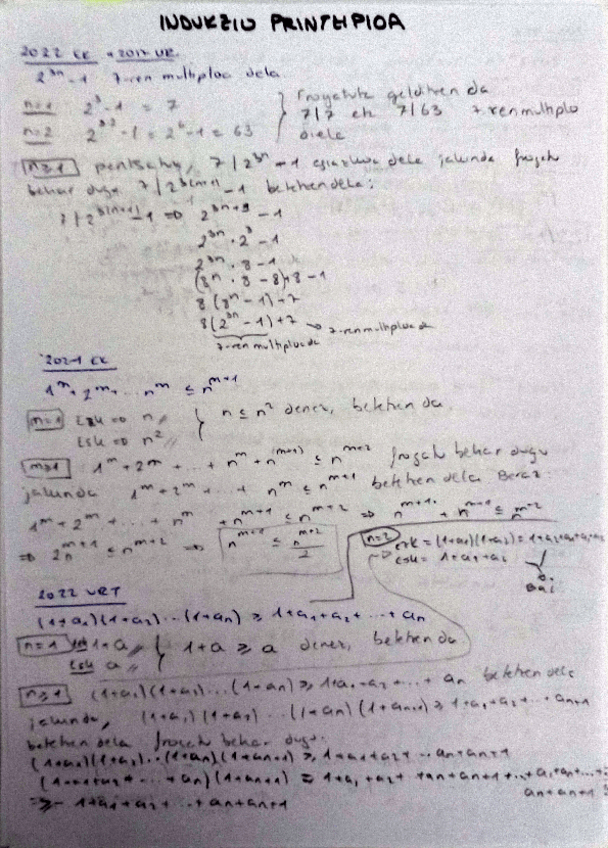 INDUKZIO PRINTZIPIOA
2022 EK + 2017 UR.
2^{3n} - 1 7-ren multiploa dela.
n=1 2^3 - 1 = 7
n=2 2^{3·2} - 1 = 2^6 - 1 = 63
Frogatuta gelditzen da
7/7 eta 7/63 7-ren multiplo
direla
n≥1 pentsatuz, 7 / 2^{3n} - 1 dela jakinda frogatu
behar dugu 7 / 2^{3(n+1)} - 1 betetzen dela:
7 / 2^{3(n+1)} - 1 => 2^{3n+3} - 1
2^{3n} · 2^3 - 1
2^{3n} · 8 - 1
(8^n · 8 - 8) + 8 - 1
8 (8^n - 1) + 7
8 (2^{3n} - 1) + 7 -> 7-ren multiploa da
7-ren multiploa da
2021 EK
1^m + 2^m + ... n^m ≤ n^{m+1}
m=1 Ezk => n
Esk => n^2
n ≤ n^2 denez, betetzen da.
m≥1 1^m + 2^m + ... + n^m + n^{(m+1)} ≤ n^{m+2} frogatu behar dugu
jakinda 1^m + 2^m + ... + n^m ≤ n^{m+1} betetzen dela. Beraz:
1^m + 2^m + ... + n^m + n^{m+1} ≤ n^{m+2} => n^{m+1} + n^{m+1} ≤ n^{m+2}
=> 2n^{m+1} ≤ n^{m+2} => n^{m+1} ≤ n^{m+2}/2
n=2 ezk = (1+a1)(1+a2) = 1+a1+a2+a1·a2
esk = 1+a1+a2
Bai
2022 URT
(1+a1)(1+a2)...(1+an) ≥ 1+a1+a2+...+an
n=1 1+a
Esk a
1+a ≥ a denez, betetzen da
n≥1 (1+a1)(1+a2)...(1+an) ≥ 1+a1+a2+...+an betetzen dela
jakinda, (1+a1)(1+a2)...(1+an)(1+an+1) ≥ 1+a1+a2+...an+1
betetzen dela frogatu behar dugu.
(1+a1)(1+a2)...(1+an)(1+an+1) ≥ 1+a1+a2+...an+an+1
(1+a1+a2+...+an)(1+an+1) = 1+a1+a2+ +an+an+1+...+a1+an+...+
an+an+1 ≥
≥ 1+a1+a2+...+an+an+1